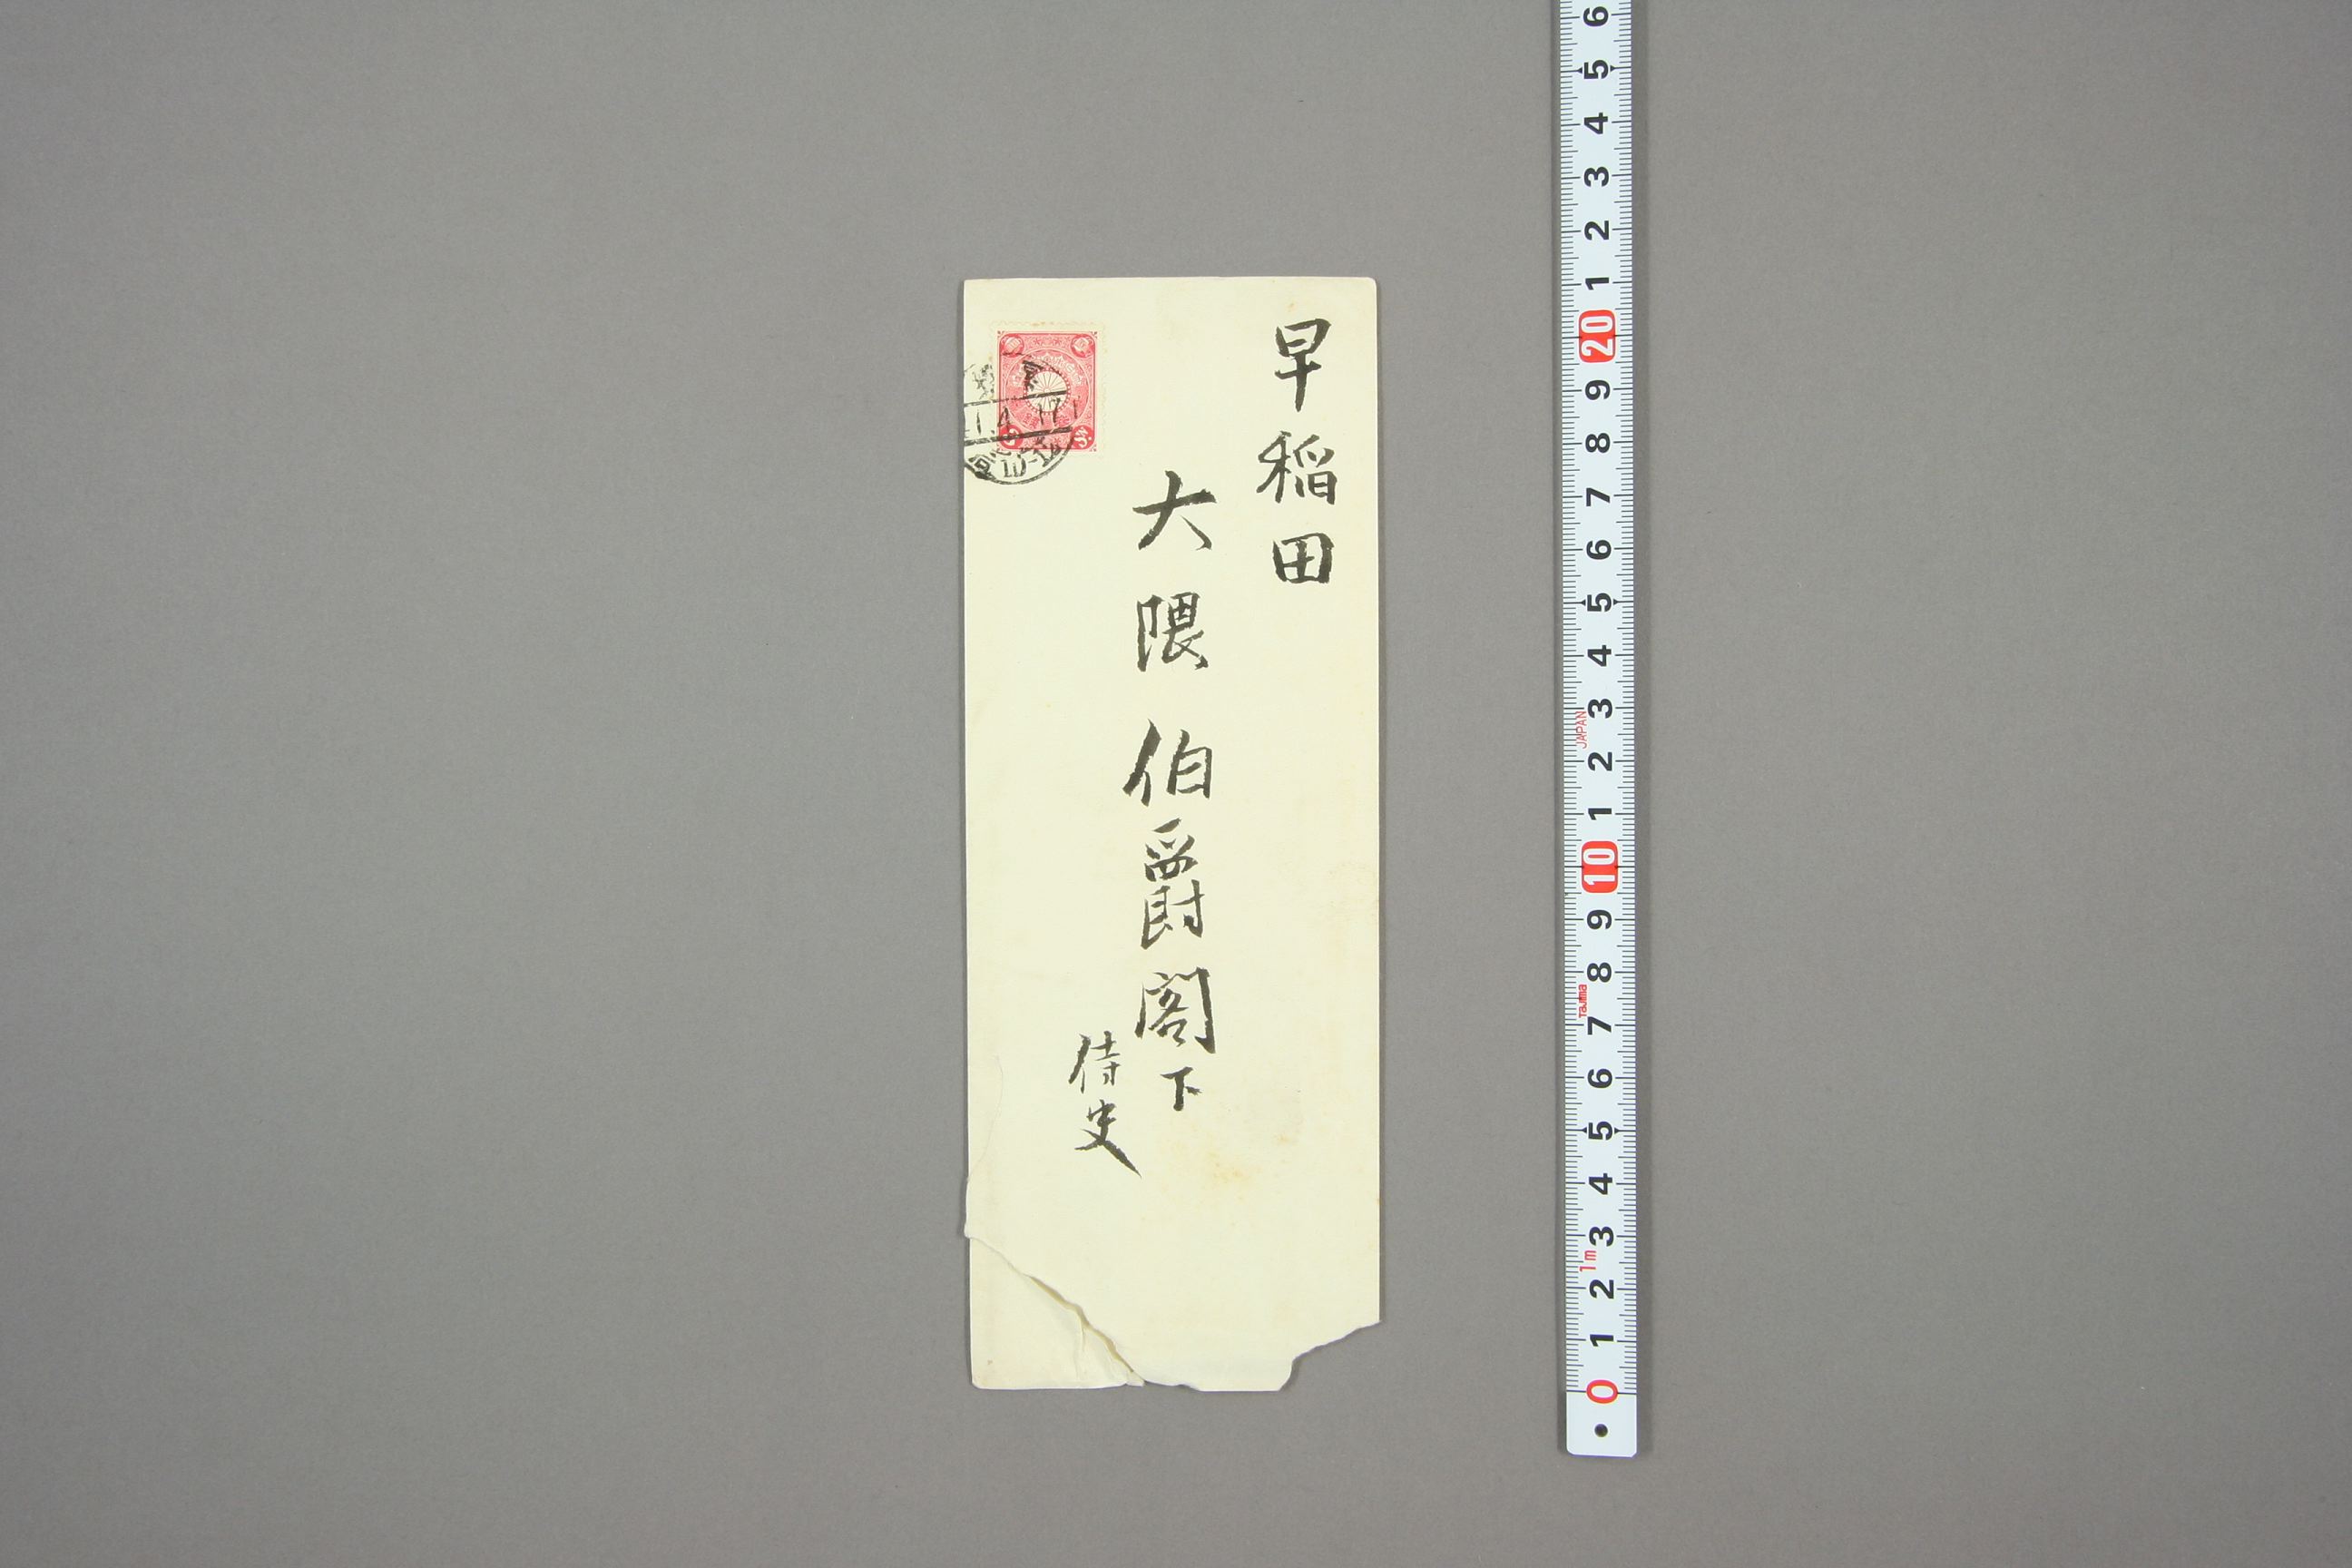 早稲田
大隈伯爵閣下
侍史
6
5
4
3
2
1
20
9
8
7
6
5
4
3
JAPAN
2
1
10
9
8
Tajima
7
6
5
4
3
1m
2
1
0